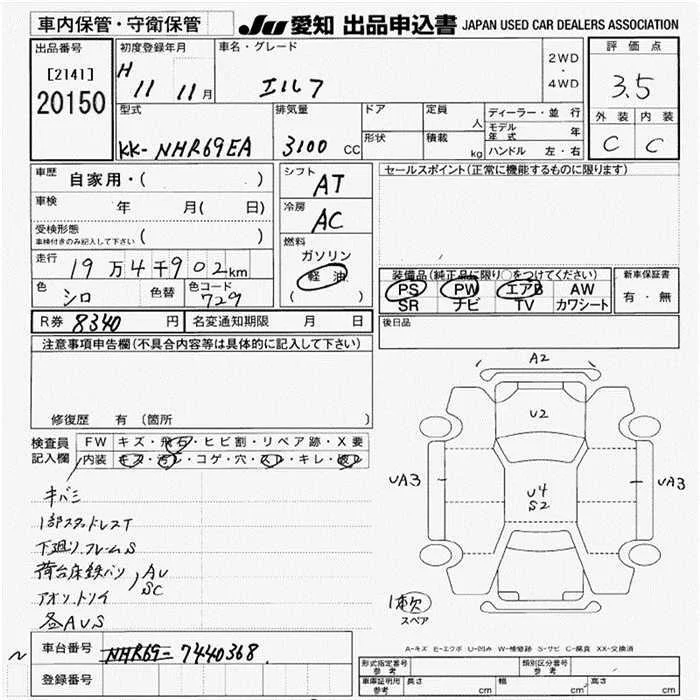 車内保管・守衛保管
JU 愛知 出品申込書 JAPAN USED CAR DEALERS ASSOCIATION
出品番号
[2141]
20150
初度登録年月
H 11 11月
車名・グレード
エルフ
2WD
・
4WD
評価点
3.5
外装 内装
C C
型式
KK- NHR69EA
排気量
3100 CC
ドア
形状
定員
人
積載
kg
ディーラー・並行
モデル年式 年
ハンドル 左・右
車歴 自家用・( )
車検 年 月( 日)
受検形態
車検付きのみ記入して下さい ( )
走行 19万4千902km
色 シロ 色替 色コード 729
シフト
AT
冷房
AC
燃料
ガソリン
軽油
( )
セールスポイント(正常に機能するものに限ります)
装備品(純正品に限り○をつけてください)
PS PW エアB AW
SR ナビ TV カワシート
新車保証書
有・無
R券 8340 円 名変通知期限 月 日
後日品
注意事項申告欄(不具合内容等は具体的に記入して下さい)
修復歴 有 (箇所 )
検査員
記入欄
FW キズ・飛石・ヒビ割・リペア跡・X要
内装 キズ・汚レ・コゲ・穴・スレ・キレ・破レ
キバミ
1部スタッドレスT
下廻リ.フレームS
荷台床鉄バン AU
SC
アオリ.トリイ
各AUS
A2
U2
UA3
U4
S2
UA3
1本欠
スペア
車台番号 NHR69-7440368
登録番号
A-キズ E-エクボ U-凹み W-補修跡 S-サビ C-腐食 XX-交換済
形式指定番号
参考
類別区分番号
参考
車庫証明用
参考
長さ cm 幅 cm 高さ cm